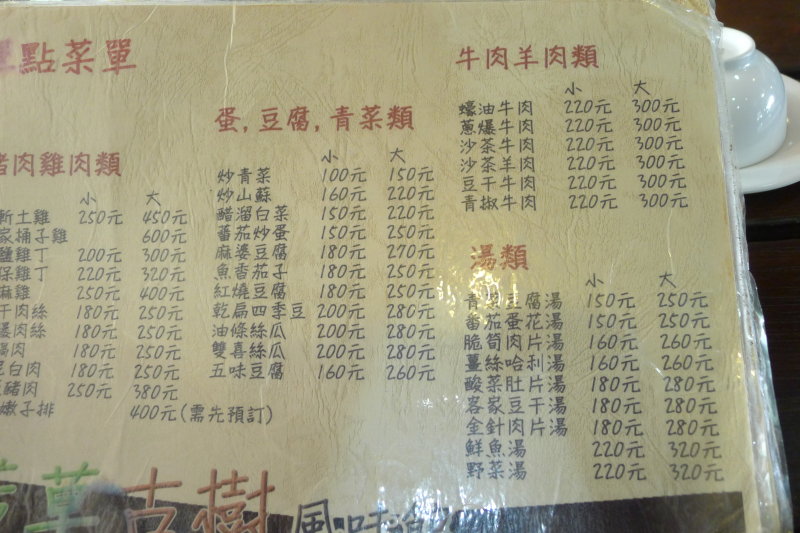 點菜單
肉雞肉類
小 大
斬土雞 250元 450元
家桶子雞 600元
鹽雞丁 200元 300元
保雞丁 220元 320元
麻雞 250元 400元
干肉絲 180元 250元
肉絲 180元 250元
肉 180元 250元
白肉 180元 250元
豬肉 250元 380元
嫩子排 400元(需先預訂)
蛋,豆腐,青菜類
小 大
炒青菜 100元 150元
炒山蘇 160元 220元
醋溜白菜 150元 220元
蕃茄炒蛋 150元 250元
麻婆豆腐 180元 270元
魚香茄子 180元 250元
紅燒豆腐 180元 250元
乾扁四季豆 200元 280元
油條絲瓜 200元 280元
雙喜絲瓜 200元 280元
五味豆腐 160元 260元
牛肉羊肉類
小 大
蠔油牛肉 220元 300元
蔥爆牛肉 220元 300元
沙茶牛肉 220元 300元
沙茶羊肉 220元 300元
豆干牛肉 220元 300元
青椒牛肉 220元 300元
湯類
小 大
青菜豆腐湯 150元 250元
番茄蛋花湯 150元 250元
脆筍肉片湯 160元 260元
薑絲哈利湯 160元 260元
酸菜肚片湯 180元 280元
客家豆干湯 180元 280元
金針肉片湯 180元 280元
鮮魚湯 220元 320元
野菜湯 220元 320元
古樹 風味